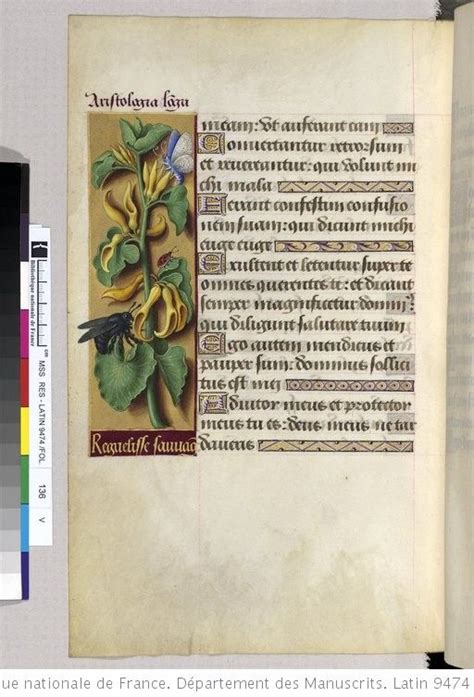 Aristologia lõga
meam: vt auferant eam
Conuertantur retrorsum
et reuereantur: qui volunt mi
chi mala
Ferant confestim confusio
nem suam: qui dicunt michi
euge euge
Exultent et letentur super te
omnes querentes te: et dicant
semper magnificetur dominꝰ:
qui diligunt salutare tuum
Ego autem mendicus et
pauper sum: dominus sollici
tus est mei
Adiutor meus et protector
meus tu es: deus meus ne tar
daueris
Reguelisse sauuag
Bibliothèque nationale de France
MSS RES - LATIN 9474 /FOL
136
V
ue nationale de France. Département des Manuscrits. Latin 9474